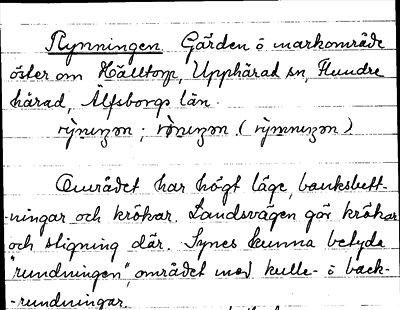 Rynningen. Gården o markområde
öster om Hälltorp, Upphärad sn, Flundre
härad, Älfsborgs län.
rynıŋən ; rönıŋən. ( rymnıŋən )
Området har högt läge, banksbett-
ningar och krökar. Landsvägen gör krökar
och stigning där. Synes kunna betyda
"rundningen", området med kulle- o back-
-rundningar.